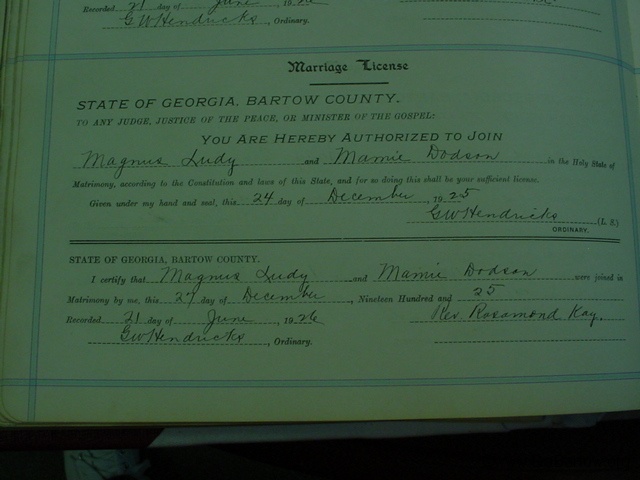 Recorded 21 day of June, 1926
G.W. Hendricks, Ordinary.
Marriage License
STATE OF GEORGIA, BARTOW COUNTY.
TO ANY JUDGE, JUSTICE OF THE PEACE, OR MINISTER OF THE GOSPEL:
YOU ARE HEREBY AUTHORIZED TO JOIN
Magnus Ludy and Mamie Dodson in the Holy State of
Matrimony, according to the Constitution and laws of this State, and for so doing this shall be your sufficient license.
Given under my hand and seal, this 24 day of December, 1925
GW Hendricks (L. S.)
ORDINARY.
STATE OF GEORGIA, BARTOW COUNTY.
I certify that Magnus Ludy and Mamie Dodson were joined in
Matrimony by me, this 27 day of December, Nineteen Hundred and 25
Recorded 21 day of June, 1926 Rev Rosamond Kay.
GW Hendricks, Ordinary.